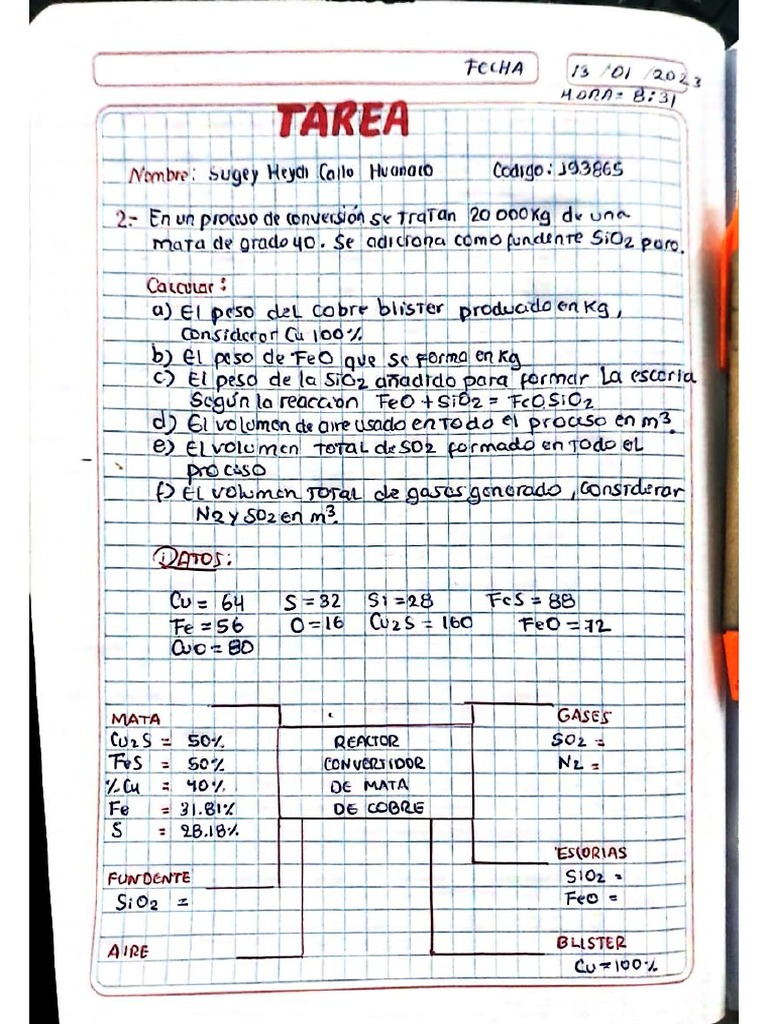 FECHA 13/01/2023
HORA= 8:31
TAREA
Nombre: Sugey Heydi Callo Huanaco Codigo: 193865
2.- En un proceso de conversión se tratan 20000Kg de una
mata de grado 40. Se adiciona como fundente SiO2 puro.
Calcular:
a) El peso del cobre blister producido en Kg,
Considerar Cu 100%
b) El peso de FeO que se forma en Kg
c) El peso de la SiO2 añadido para formar la escoria
Según la reacción FeO + SiO2 = FeO.SiO2
d) El volumen de aire usado en todo el proceso en m3.
e) El volumen total de SO2 formado en todo el
proceso
f) El volumen total de gases generado, considerar
N2 y SO2 en m3.
DATOS:
Cu = 64 S = 32 Si = 28 FeS = 88
Fe = 56 O = 16 Cu2S = 160 FeO = 72
CuO = 80
MATA GASES
Cu2S = 50% REACTOR SO2 =
FeS = 50% CONVERTIDOR N2 =
%Cu = 40% DE MATA
Fe = 31.81% DE COBRE
S = 28.18%
ESCORIAS
FUNDENTE SiO2 =
SiO2 = FeO =
AIRE BLISTER
Cu = 100%